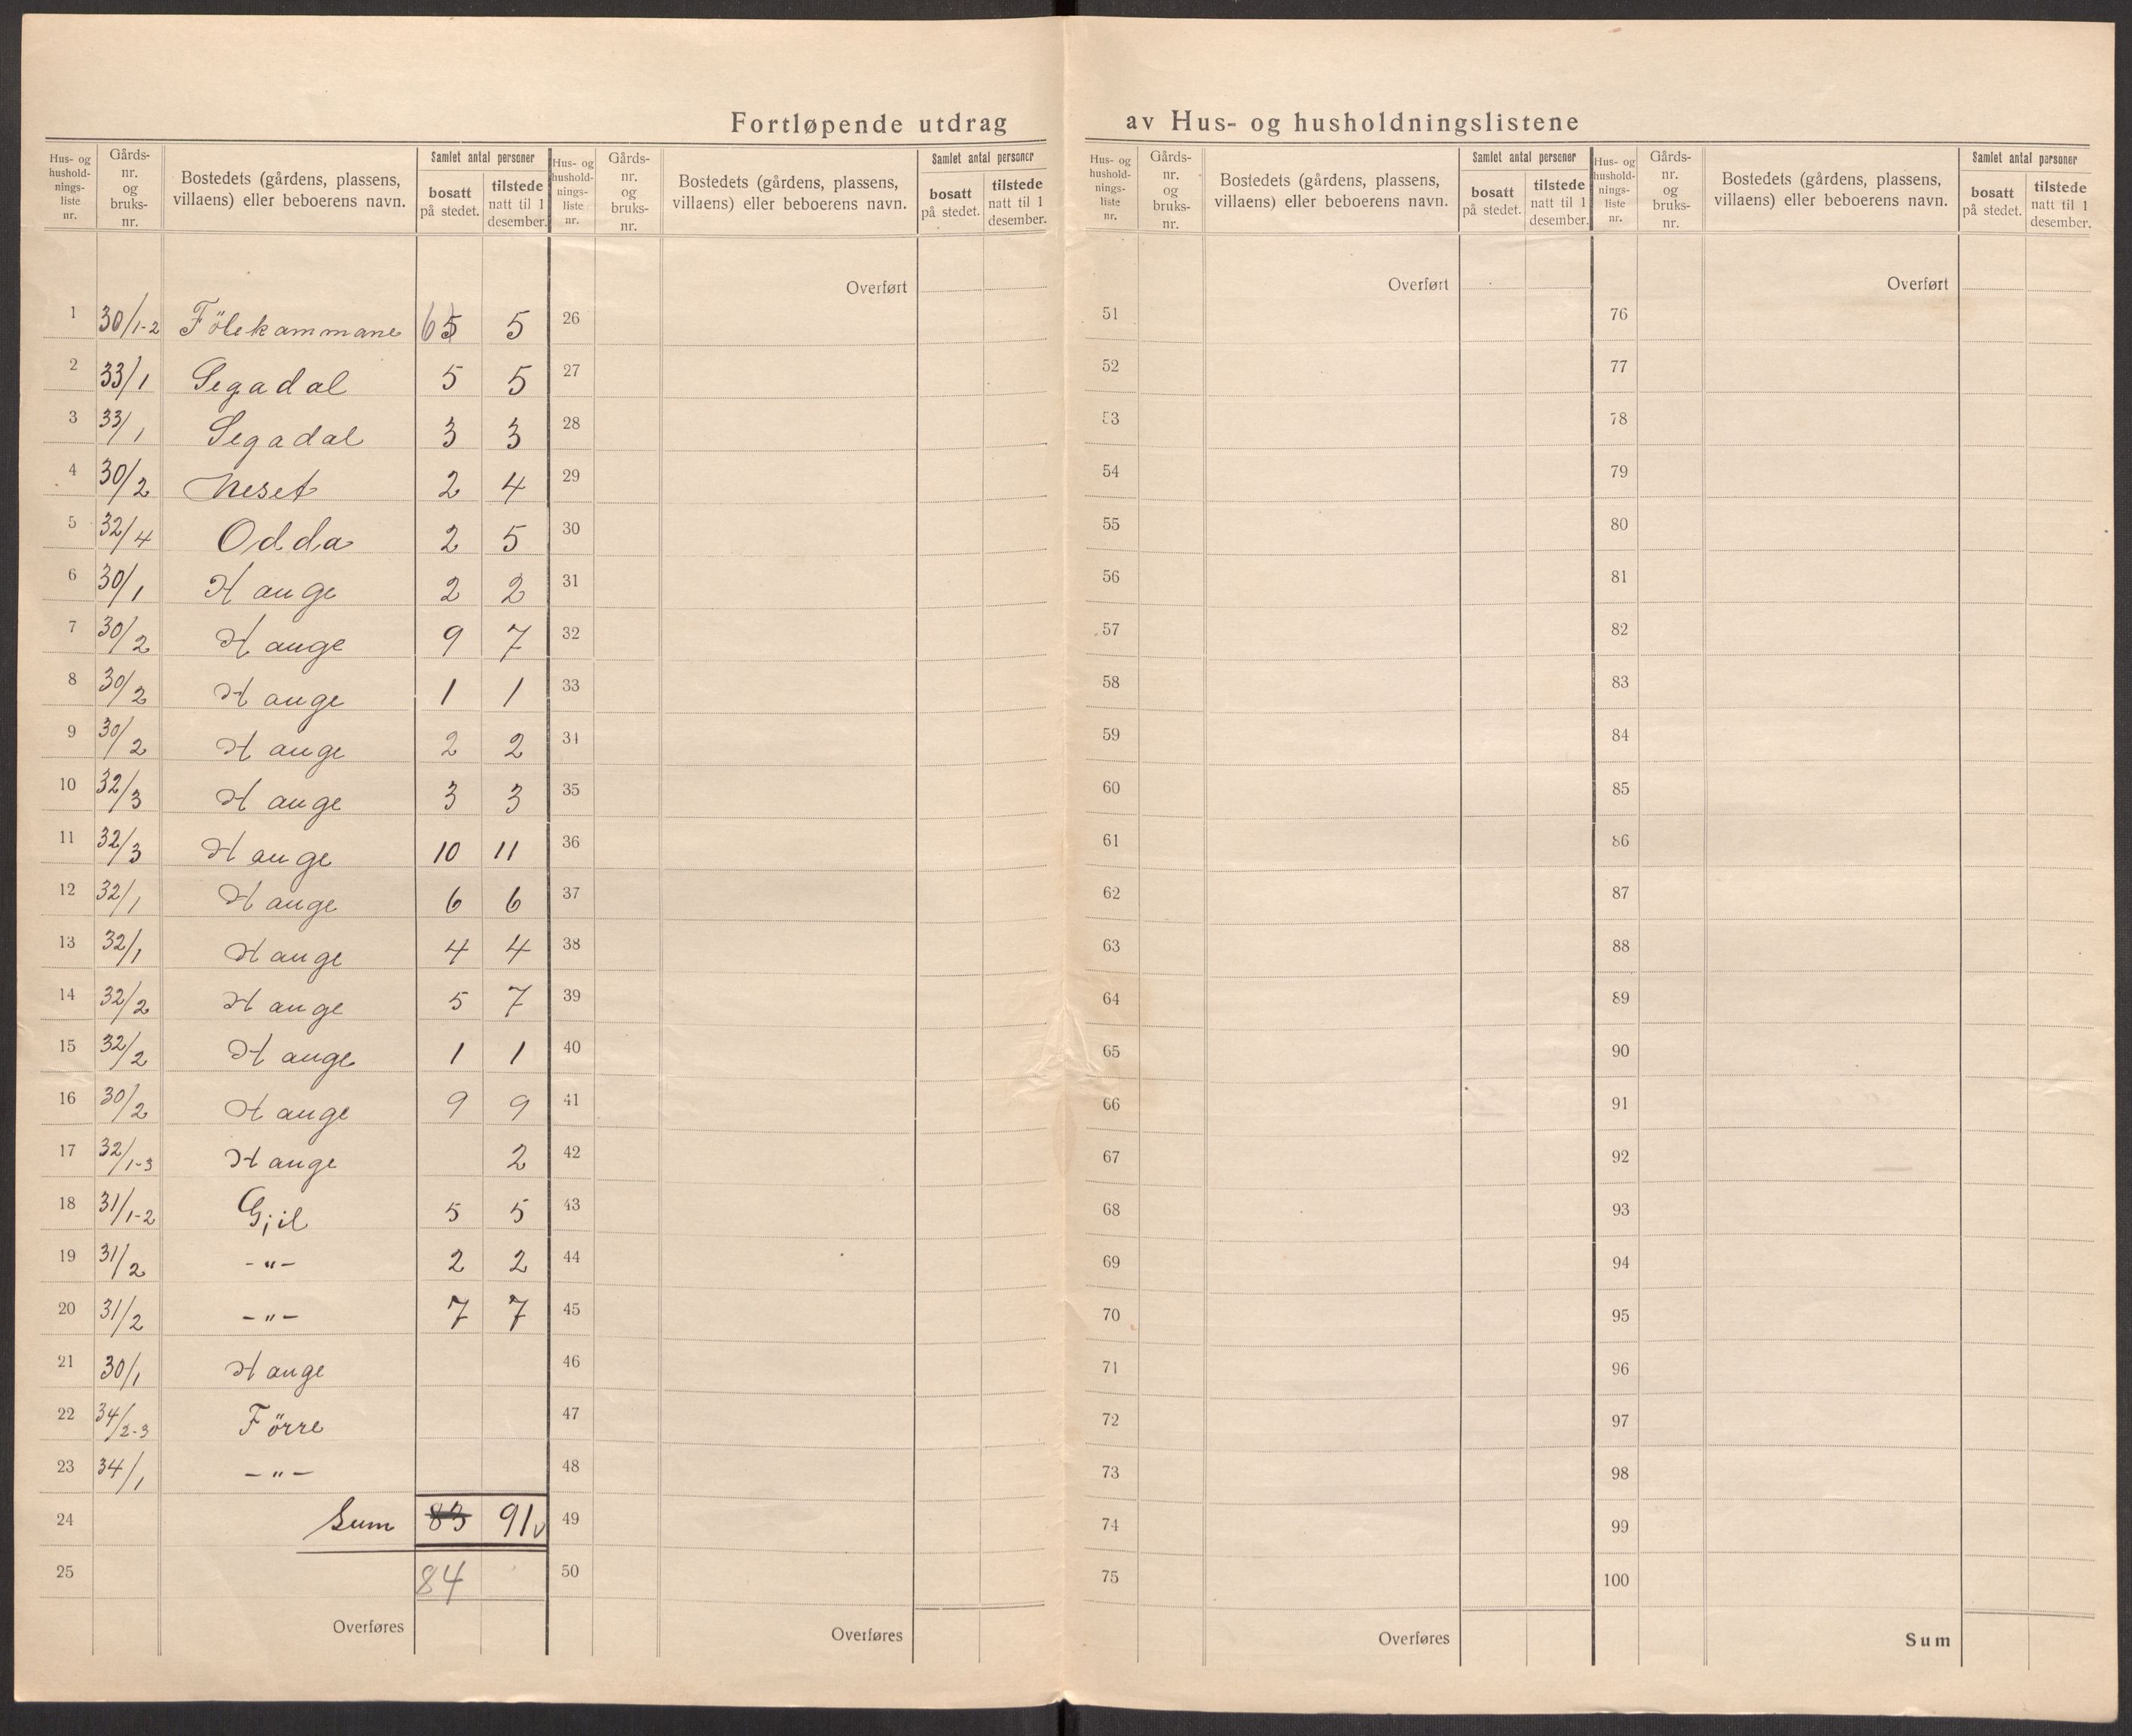 Fortløpende utdrag av Hus- og husholdningslistene
Hus- og husholdnings-liste nr. | Gårds-nr. og bruks-nr. | Bostedets (gårdens, plassens, villaens) eller beboerens navn. | Samlet antal personer | bosatt på stedet. | tilstede natt til 1 desember.
1 30/1-2 Fölekammane 6 5 5
2 33/1 Segadal 5 5
3 33/1 Segadal 3 3
4 30/2 Neset 2 4
5 32/4 Odda 2 5
6 30/1 Hauge 2 2
7 30/2 Hauge 9 7
8 30/2 Hauge 1 1
9 30/2 Hauge 2 2
10 32/3 Hauge 3 3
11 32/3 Hauge 10 11
12 32/1 Hauge 6 6
13 32/1 Hauge 4 4
14 32/2 Hauge 5 7
15 32/2 Hauge 1 1
16 30/2 Hauge 9 9
17 32/1-3 Hauge 2
18 31/1-2 Gjil 5 5
19 31/2 -"- 2 2
20 31/2 -"- 7 7
21 30/1 Hauge
22 34/2-3 Førre
23 34/1 -"-
24 Sum 83 91 v
25 84
Overføres
Hus- og husholdnings-liste nr. | Gårds-nr. og bruks-nr. | Bostedets (gårdens, plassens, villaens) eller beboerens navn. | Samlet antal personer | bosatt på stedet. | tilstede natt til 1 desember.
Overført
26
27
28
29
30
31
32
33
34
35
36
37
38
39
40
41
42
43
44
45
46
47
48
49
50
Overføres
Hus- og husholdnings-liste nr. | Gårds-nr. og bruks-nr. | Bostedets (gårdens, plassens, villaens) eller beboerens navn. | Samlet antal personer | bosatt på stedet. | tilstede natt til 1 desember.
Overført
51
52
53
54
55
56
57
58
59
60
61
62
63
64
65
66
67
68
69
70
71
72
73
74
75
Overføres
Hus- og husholdnings-liste nr. | Gårds-nr. og bruks-nr. | Bostedets (gårdens, plassens, villaens) eller beboerens navn. | Samlet antal personer | bosatt på stedet. | tilstede natt til 1 desember.
Overført
76
77
78
79
80
81
82
83
84
85
86
87
88
89
90
91
92
93
94
95
96
97
98
99
100
Sum